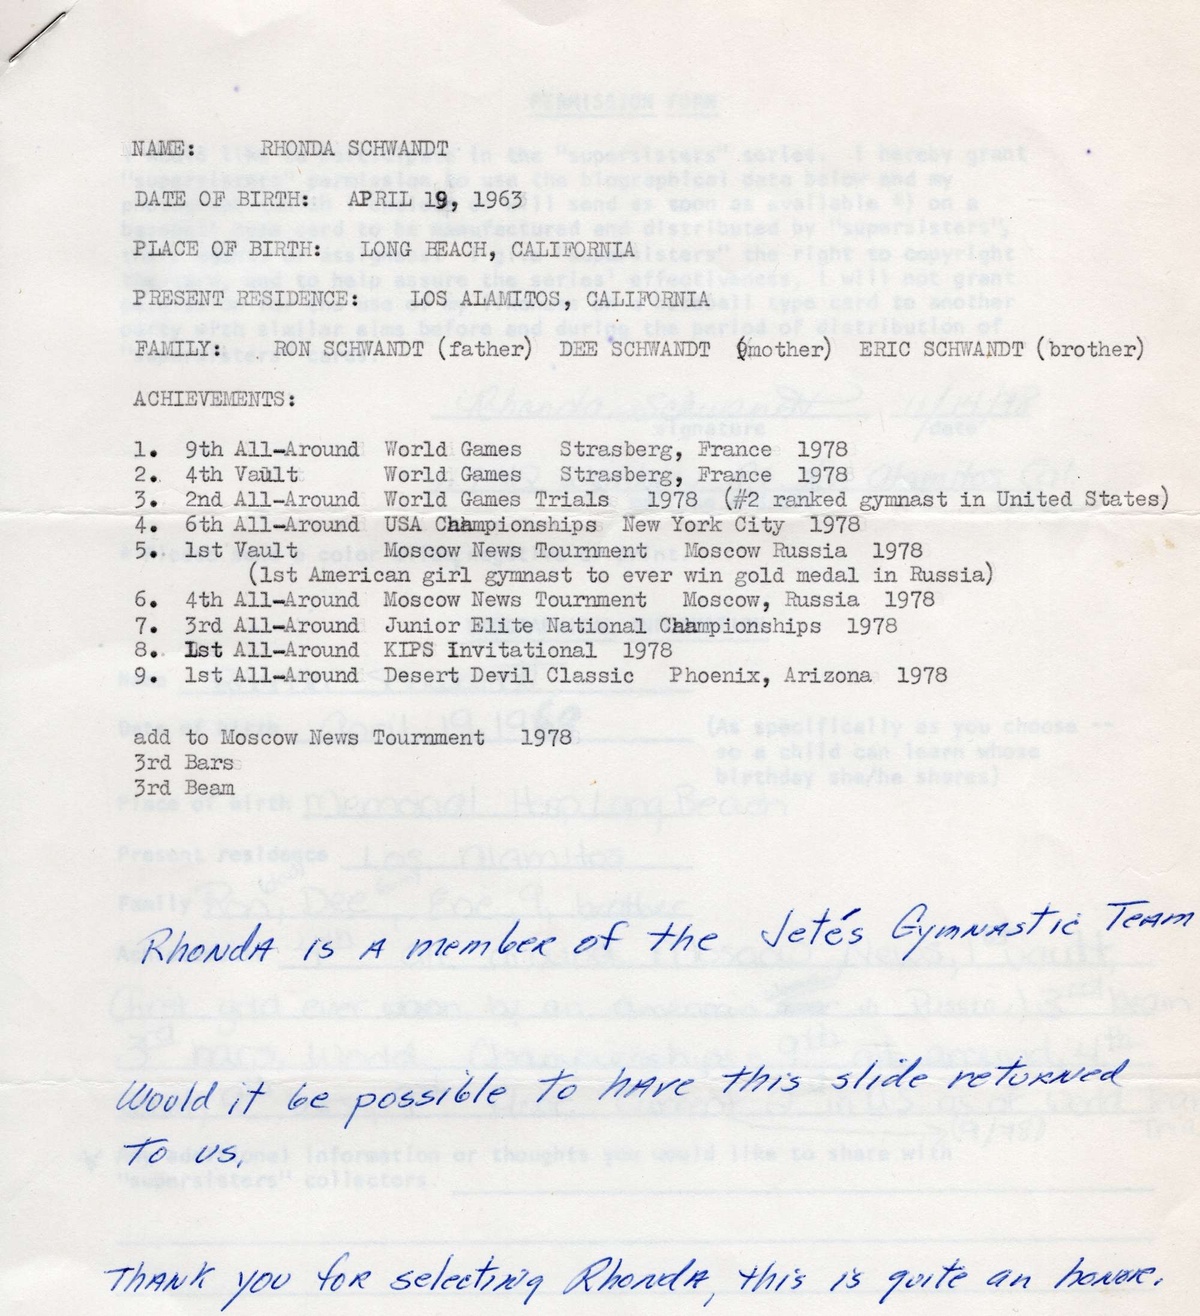 NAME: RHONDA SCHWANDT
DATE OF BIRTH: APRIL 19, 1963
PLACE OF BIRTH: LONG BEACH, CALIFORNIA
PRESENT RESIDENCE: LOS ALAMITOS, CALIFORNIA
FAMILY: RON SCHWANDT (father) DEE SCHWANDT (mother) ERIC SCHWANDT (brother)
ACHIEVEMENTS:
1. 9th All-Around World Games Strasberg, France 1978
2. 4th Vault World Games Strasberg, France 1978
3. 2nd All-Around World Games Trials 1978 (#2 ranked gymnast in United States)
4. 6th All-Around USA Championships New York City 1978
5. 1st Vault Moscow News Tournment Moscow Russia 1978
(1st American girl gymnast to ever win gold medal in Russia)
6. 4th All-Around Moscow News Tournment Moscow, Russia 1978
7. 3rd All-Around Junior Elite National Championships 1978
8. 1st All-Around KIPS Invitational 1978
9. 1st All-Around Desert Devil Classic Phoenix, Arizona 1978
add to Moscow News Tournment 1978
3rd Bars
3rd Beam
Rhonda is a member of the Jeté's Gymnastic Team
Would it be possible to have this slide returned
to us.
Thank you for selecting Rhonda, this is quite an honor.